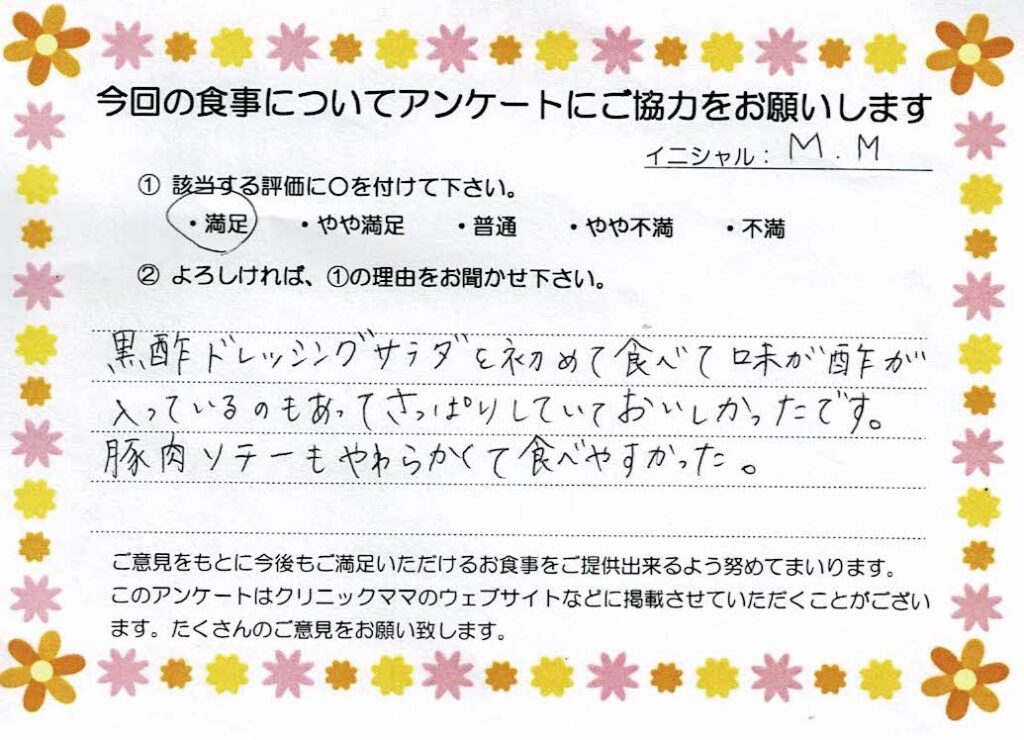 今回の食事についてアンケートにご協力をお願いします
イニシャル： M.M
① 該当する評価に〇を付けて下さい。
・満足 ・やや満足 ・普通 ・やや不満 ・不満
② よろしければ、①の理由をお聞かせ下さい。
黒酢ドレッシングサラダを初めて食べて味が酢が
入っているのもあってさっぱりしていておいしかったです。
豚肉ソテーもやわらかくて食べやすかった。
ご意見をもとに今後もご満足いただけるお食事をご提供出来るよう努めてまいります。
このアンケートはクリニックママのウェブサイトなどに掲載させていただくことがござい
ます。たくさんのご意見をお願い致します。